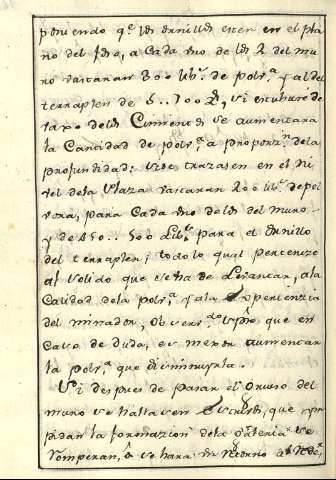 poniendo q.e los ornillos esten en el pla
no del foso, a Cada uno de los 2 del mu
ro vastaran 300 lib.s de polv.a y al del
terraplen de 6.. 700 si estubiere de
vaxo delos Cimientos se aumentara
la Cantidad de polv.a a proporz.n dela
profundidad; si se trazasen en el ni
vel dela Plaza vastaran 200 lib.s de pol
vora, para Cada uno de los del muro
y de 450.. 500 Lib.s para el ornillo
del terraplen; todo lo qual pertenece
al solido que se ha de Levantar, ala
Calidad dela polv.a y ala Experienzia
del minador, que en
Caso de duda, es mexor aumentar
la polv.a que disminuyrla.
Si despues de pasar el Grueso del
muro se hallasen que ym
pidan la formazion dela Galeria se
Romperan, o se hara un Retorno